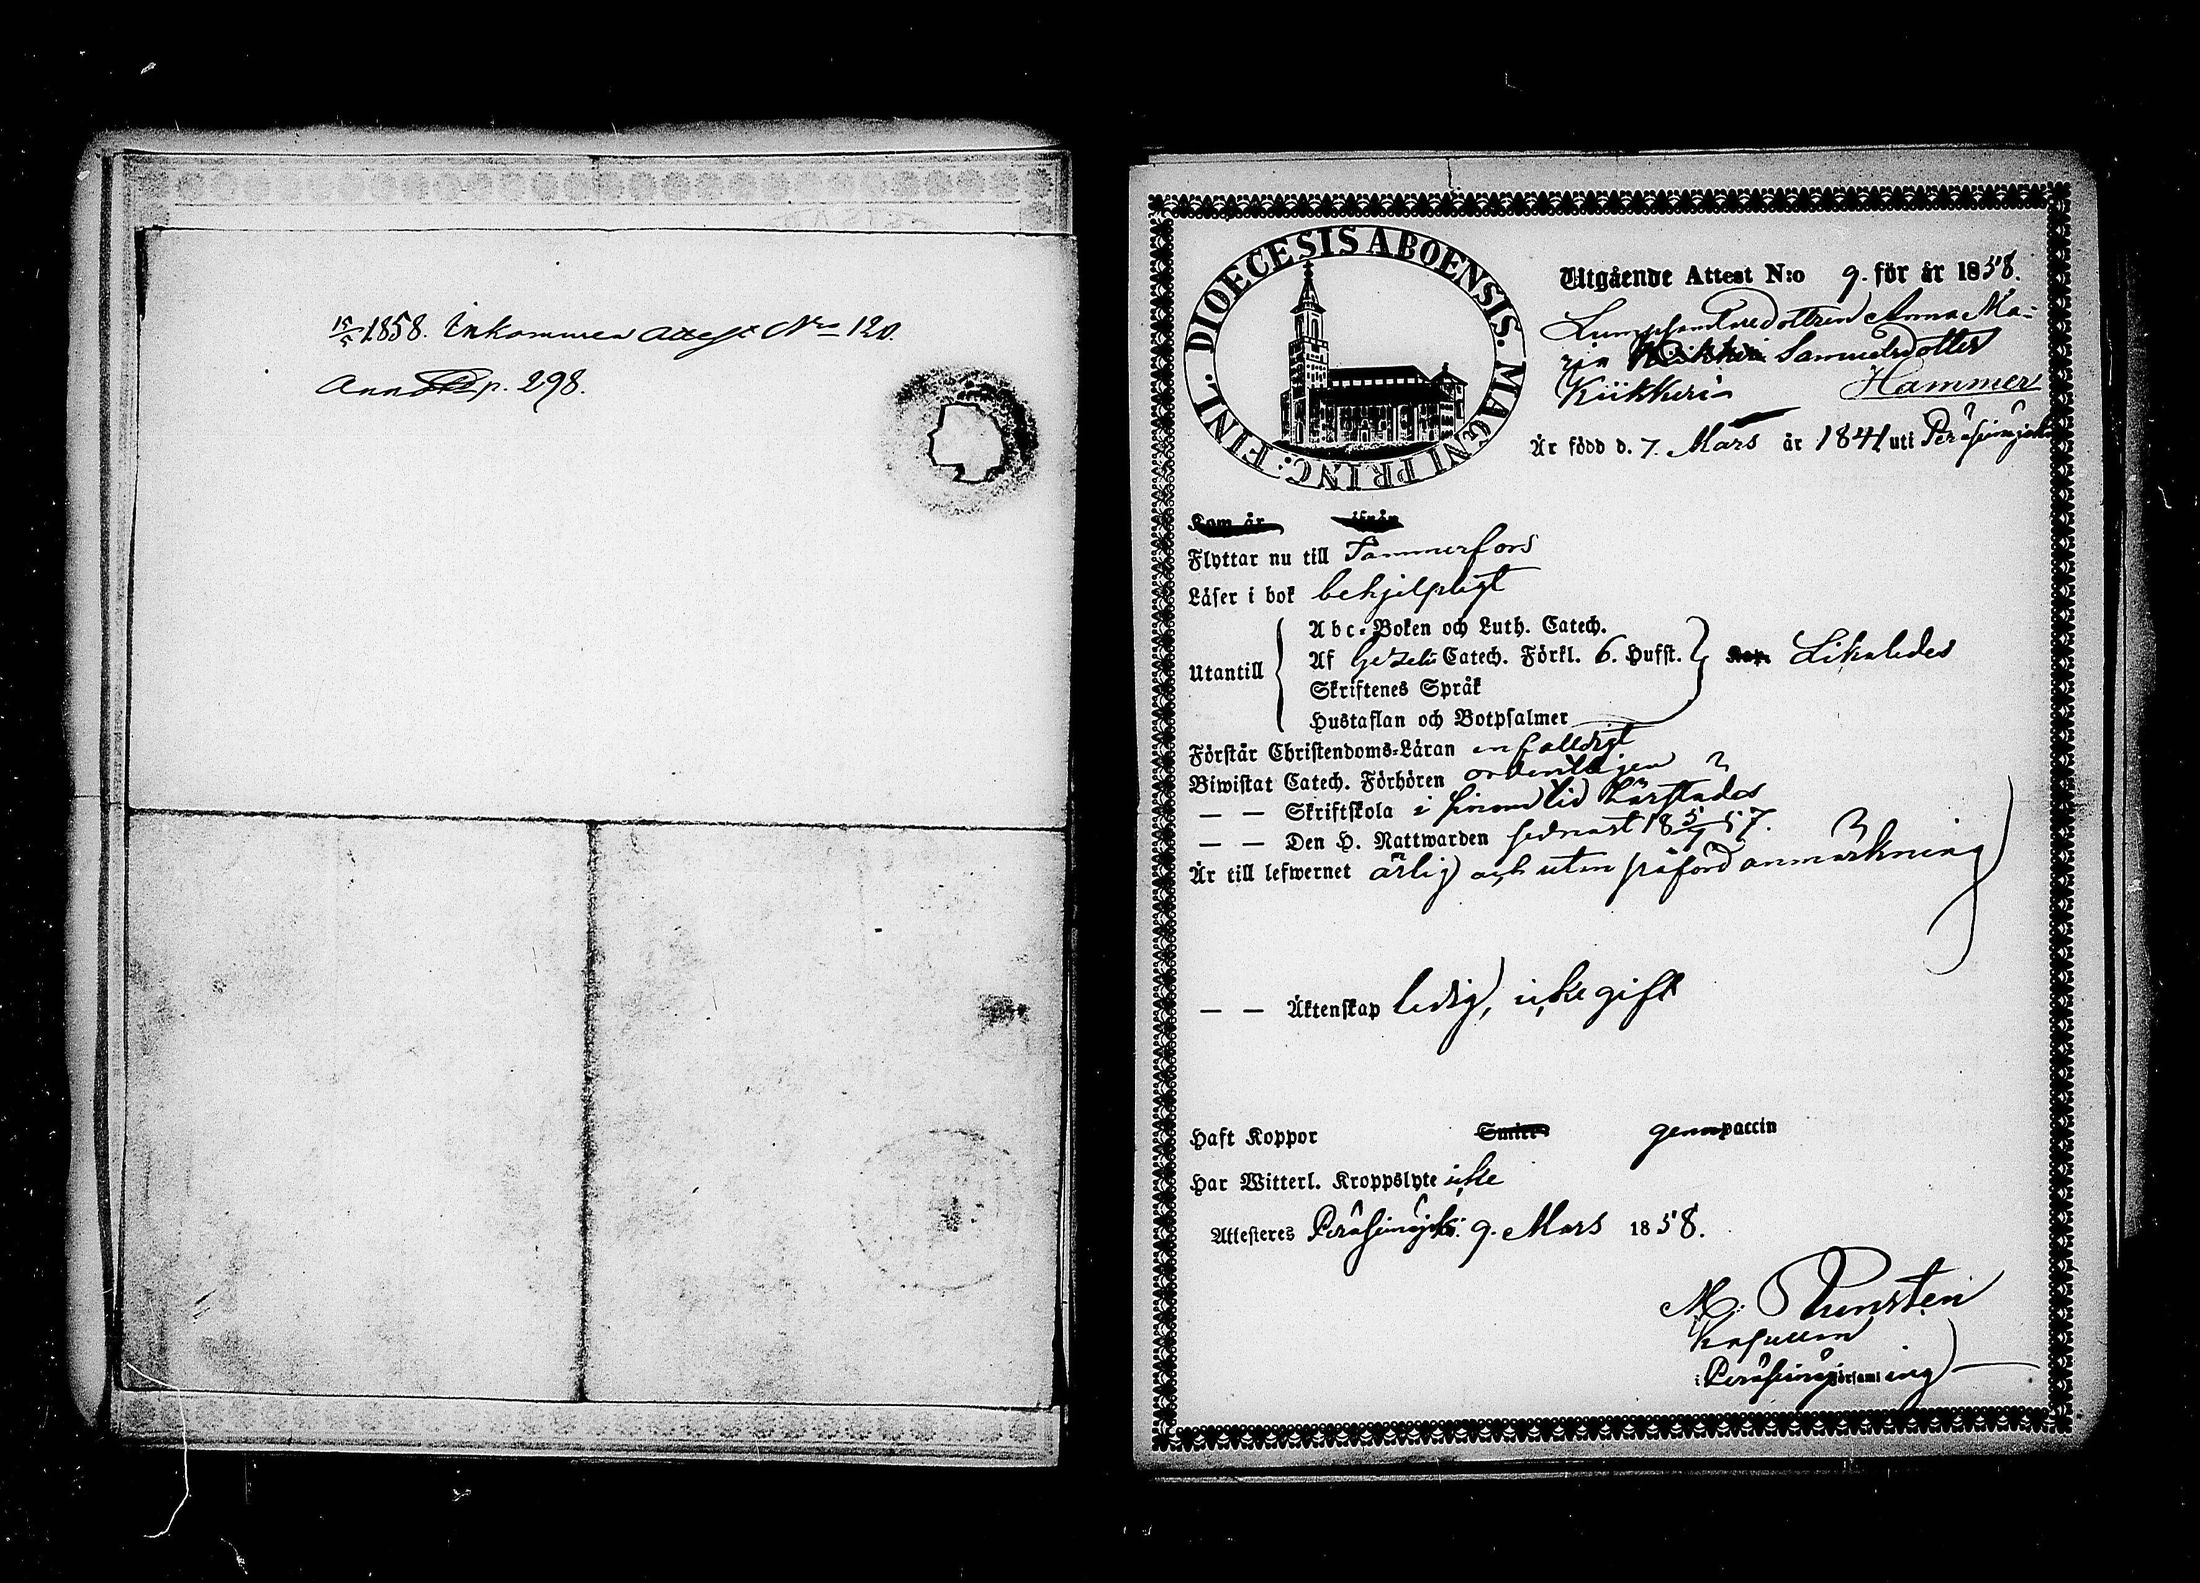 15/5 1858. Inkommen Attest Nro 120.
Ann p. 298.
DIOECESIS ABOENSIS. MAGNI PRINC: FINL.
Utgående Attest N:o 9. för år 1858.
Anna Ma-
ria Samuelsdotter
Kiikkeri Hammer
Är född d. 7. Mars år 1841 uti Peräseinäjoki
Kom år ifrån
Flyttar nu till Tammerfors
Läser i bok behjelpligt
Utantill
Abc-Boken och Luth. Catech.
Af Gezelii Catech. Förkl. 6. Hufst. Kap. Likaledes
Skriftenes Språk
Hustaflan och Botpsalmer
Förstår Christendoms-Läran enfaldigt
Biwistat Catech. Förhören ordentligen
— — Skriftskola i sinom tid härstädes
— — Den H. Nattwarden sednast 18 5/7 57.
Är till lefwernet ärlig och utan påförd anmärkning
— — Äktenskap ledig, icke gift
Haft Koppor genom vaccin
Har Witterl. Kroppslyte icke
Attesteres Peräseinäjoki 9. Mars 1858.
M.
Kapellan
i Peräseinäj. Församling